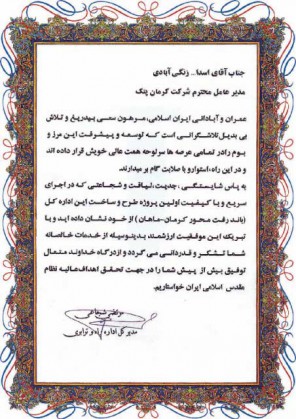 جناب آقای اسدا... زنگی آبادی
مدیر عامل محترم شرکت کرمان پتک
عمران و آبادانی ایران اسلامی، مرهون سعی بیدریغ و تلاش
بی بدیل تلاشگرانی است که توسعه و پیشرفت این مرز و
بوم را در تمامی عرصه ها سرلوحه همت عالی خویش قرار داده اند
و در این راه، استوار و با صلابت گام بر میدارند.
به پاس شایستگی ، جدیت، لیاقت و شجاعتی که در اجرای
سریع و با کیفیت اولین پروژه طرح و ساخت این اداره کل
(باند رفت محور کرمان-ماهان) از خود نشان داده اید و با
تبریک این موفقیت ارزشمند بدینوسیله از خدمات خالصانه
شما تشکر و قدردانی می گردد و از درگاه خداوند متعال
توفیق بیش از پیش شما را در جهت تحقق اهداف عالیه نظام
مقدس اسلامی ایران خواستاریم.
مدیر کل اداره راه و ترابری